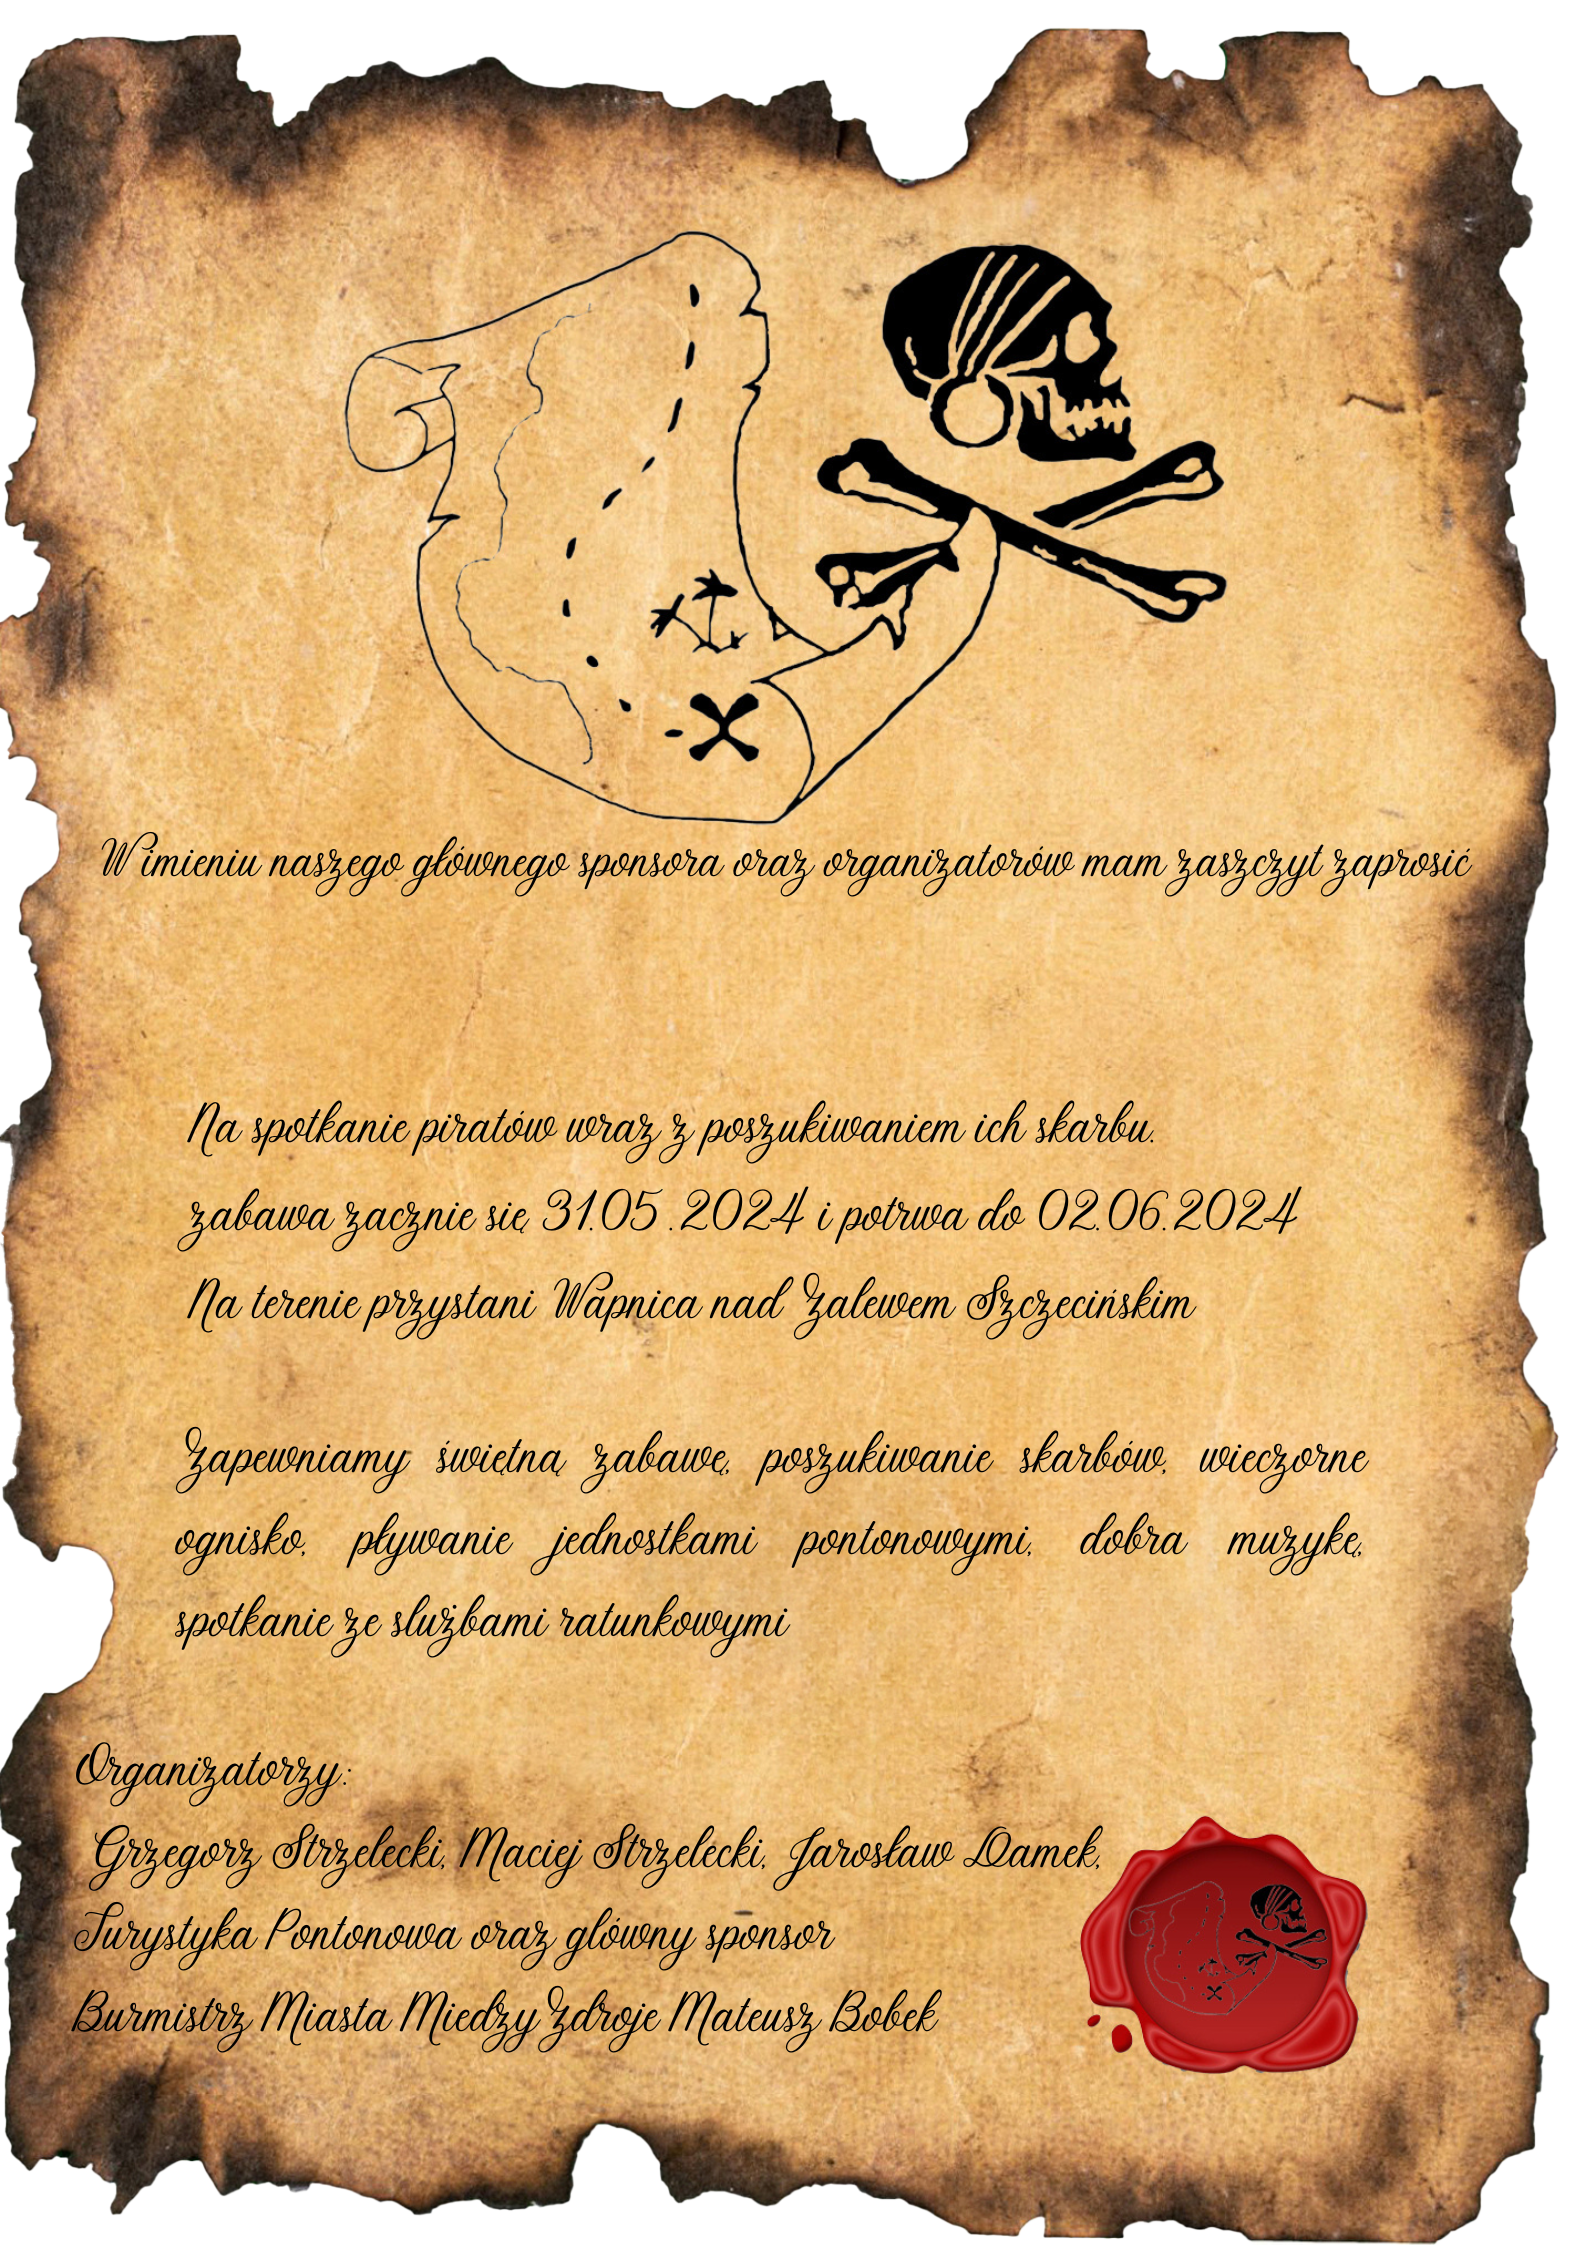 W imieniu naszego głównego sponsora oraz organizatorów mam zaszczyt zaprosić
Na spotkanie piratów wraz z poszukiwaniem ich skarbu.
zabawa zacznie się 31.05 .2024 i potrwa do 02.06.2024
Na terenie przystani Wapnica nad Zalewem Szczecińskim
Zapewniamy świętną zabawę, poszukiwanie skarbów, wieczorne
ognisko, pływanie jednostkami pontonowymi, dobra muzykę,
spotkanie ze slużbami ratunkowymi
Organizatorzy:
Grzegorz Strzelecki, Maciej Strzelecki, Jarosław Damek,
Turystyka Pontonowa oraz glówny sponsor
Burmistrz Miasta Miedzy Zdroje Mateusz Bobek